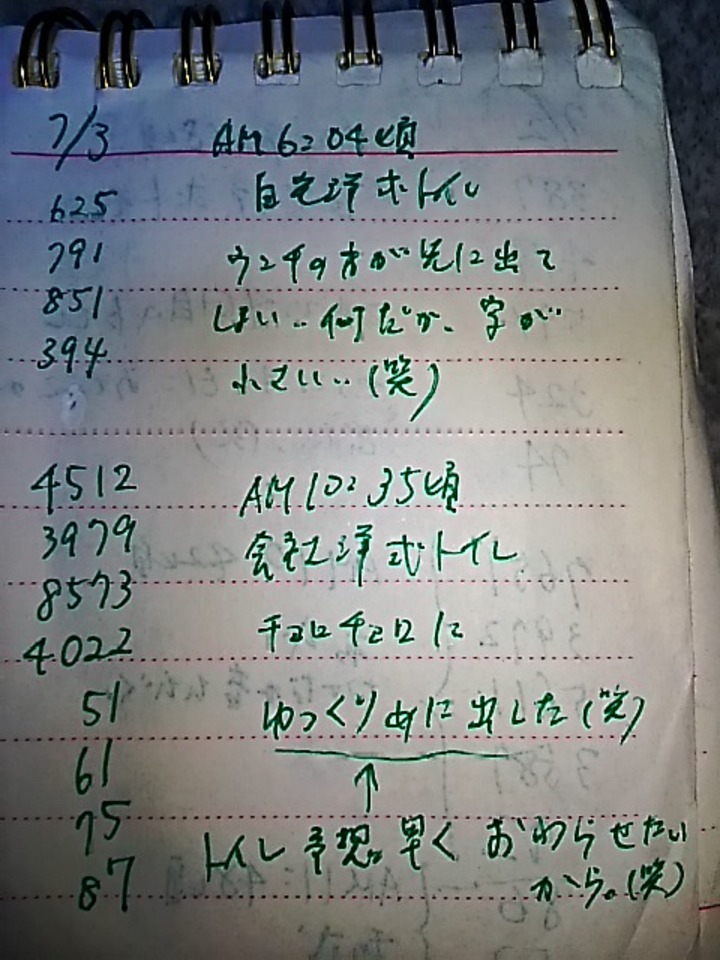 7/3 AM6:04頃
625 自宅洋式トイレ
791 ウンチの方が先に出て
851 しまい..何だか、字が
394 小さい..(笑)
4512 AM10:35頃
3979 会社洋式トイレ
8573
4022 チョロチョロに
51 ゆっくりめに出した(笑)
61
↑
75 トイレ予想。早くおわらせたい
87 から。(笑)